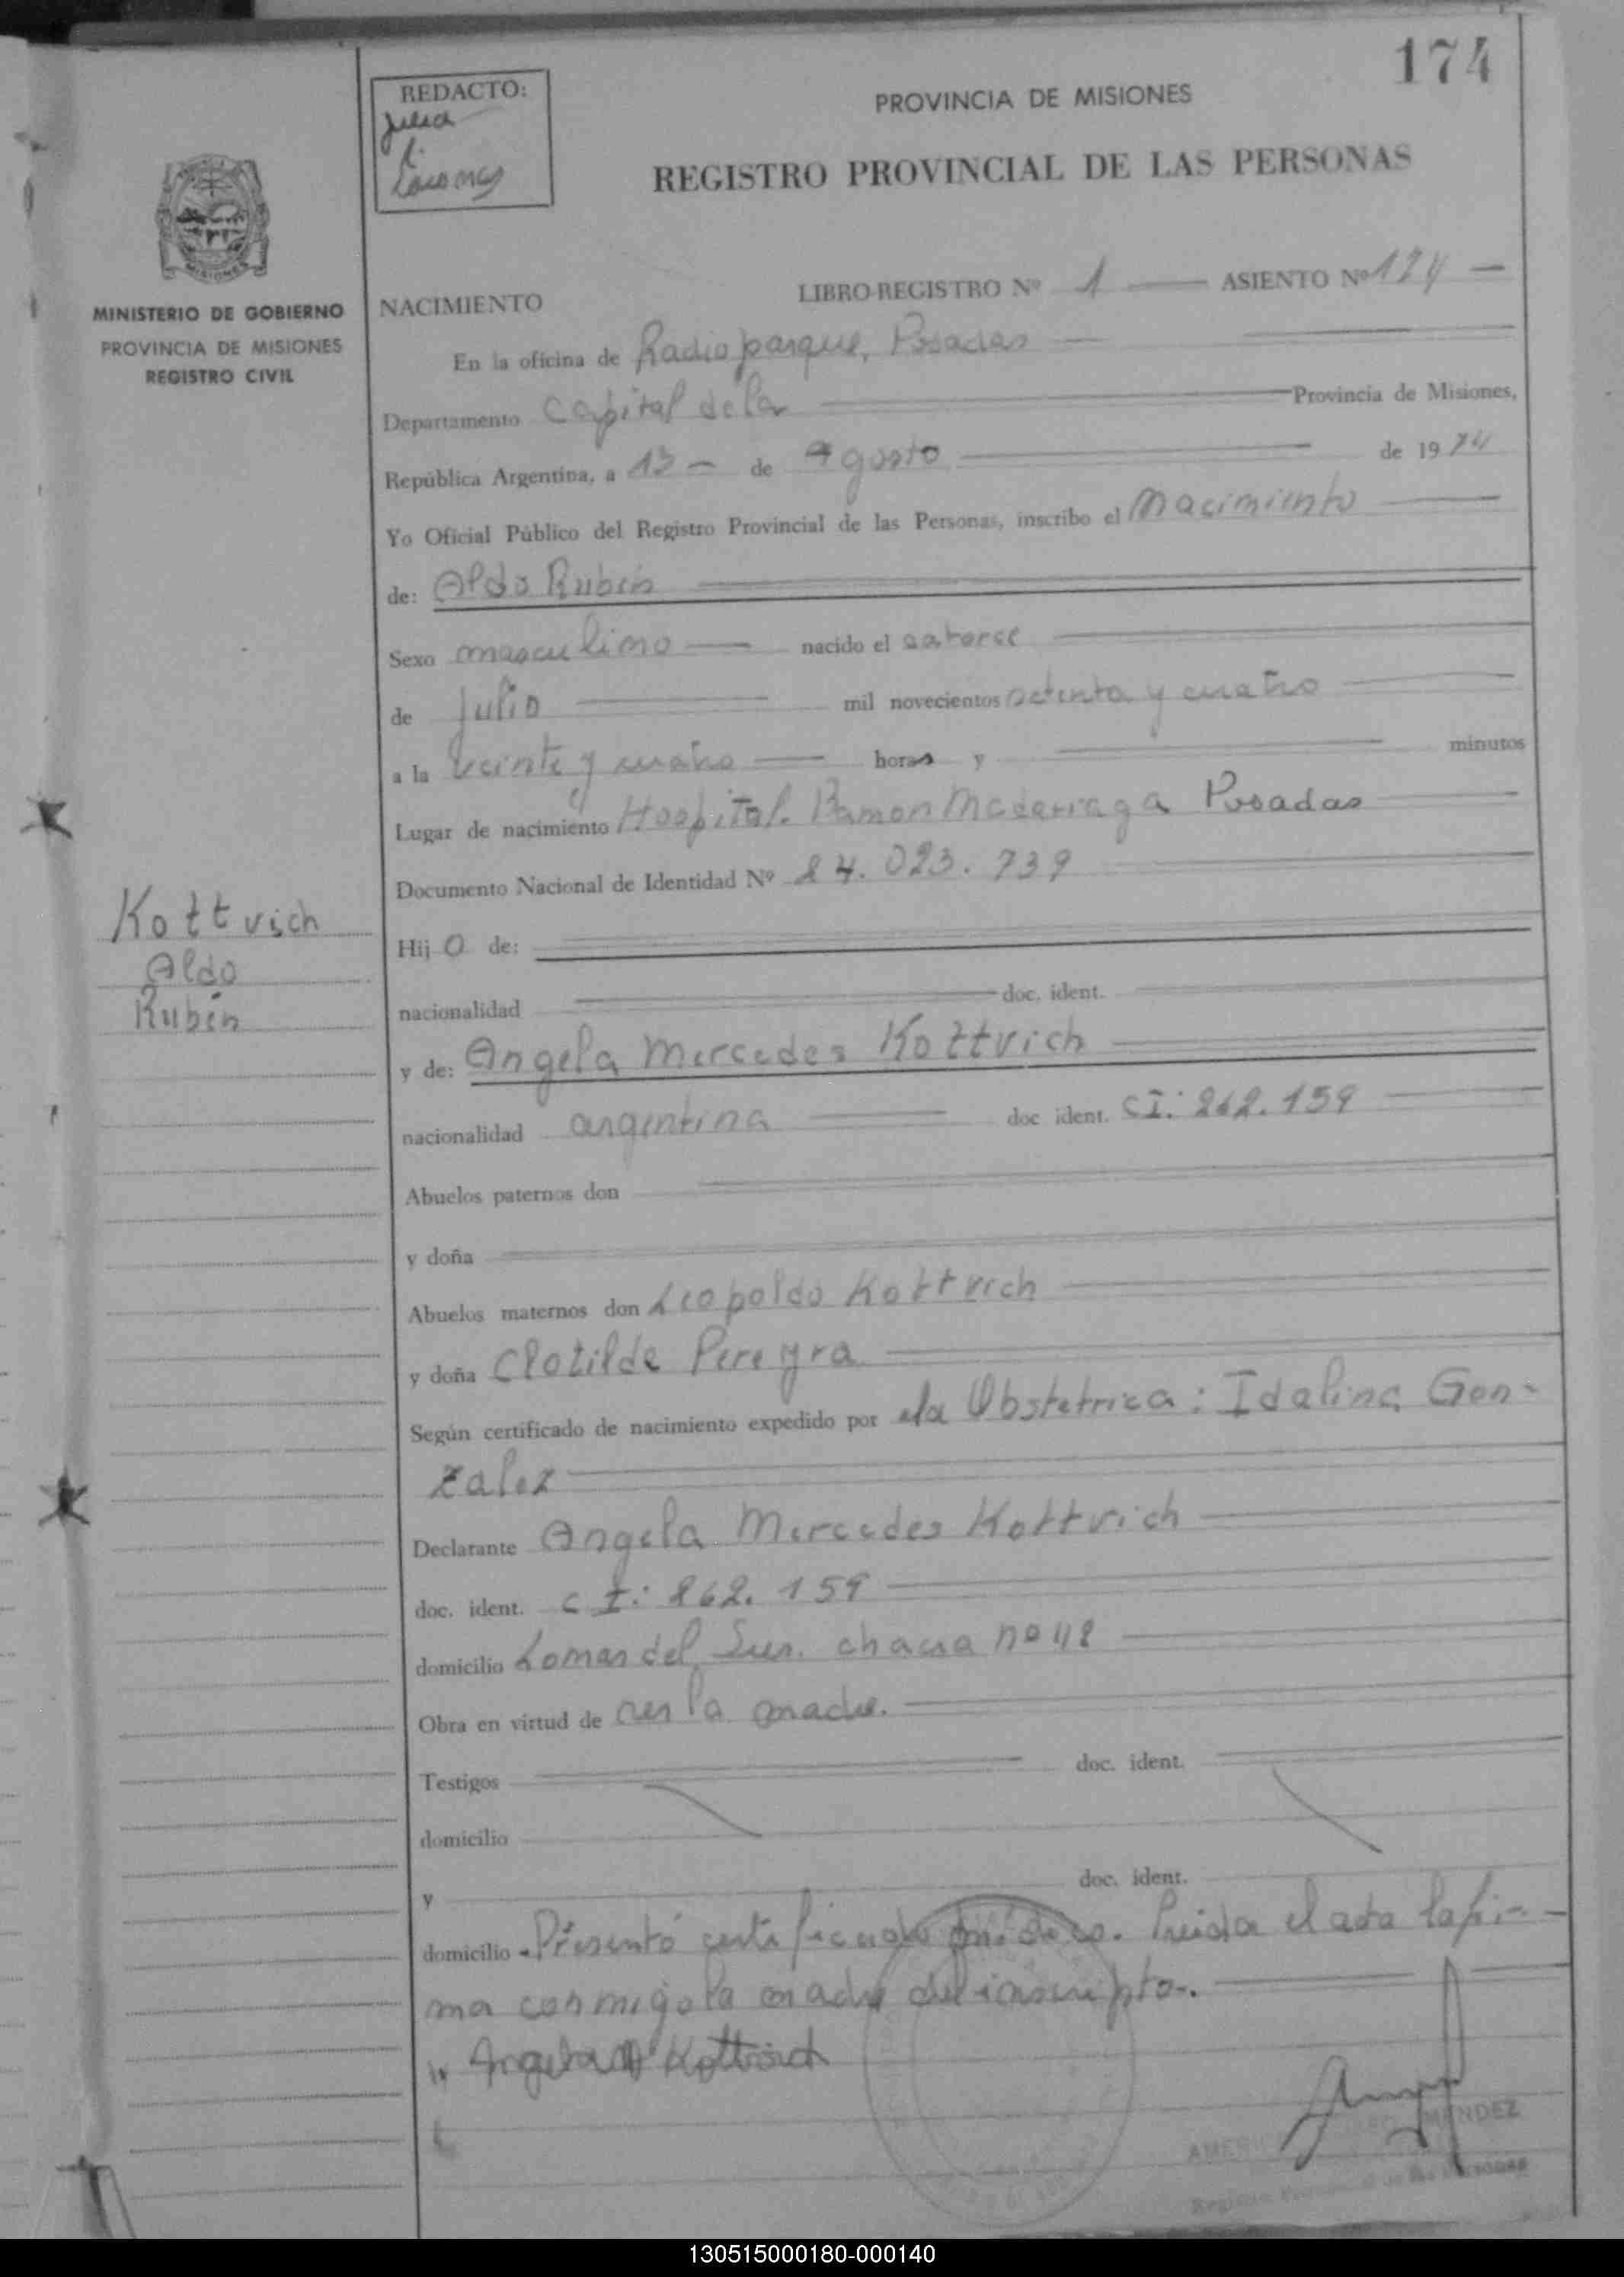 174
REDACTO:
Julia
PROVINCIA DE MISIONES
REGISTRO PROVINCIAL DE LAS PERSONAS
MISIONES
MINISTERIO DE GOBIERNO
PROVINCIA DE MISIONES
REGISTRO CIVIL
NACIMIENTO
LIBRO-REGISTRO Nº 1 ASIENTO Nº 174
En la oficina de Radioparque, Posadas
Departamento Capital de la Provincia de Misiones,
República Argentina, a 13 de Agosto de 1974
Yo Oficial Público del Registro Provincial de las Personas, inscribo el Nacimiento
de: Aldo Rubén
Sexo masculino nacido el catorce
de Julio mil novecientos setenta y cuatro
a la veinte y cuatro horas y minutos
Lugar de nacimiento Hospital Ramon Madariaga Posadas
Documento Nacional de Identidad Nº 24.023.739
Kottvich
Aldo
Rubén
Hijo de:
nacionalidad doc. ident.
y de: Angela Mercedes Kottvich
nacionalidad argentina doc ident. CI: 262.159
Abuelos paternos don
y doña
Abuelos maternos don Leopoldo Kottvich
y doña Clotilde Pereyra
Según certificado de nacimiento expedido por la Obstetrica: Idalina Gon-
zalez
Declarante Angela Mercedes Kottvich
doc. ident. CI: 262.159
domicilio Lomas del Sur. chacra nº 48
Obra en virtud de ser la madre.
Testigos doc. ident.
domicilio
y doc. ident.
domicilio Presentó certificado médico. Leida el acta la fir-
ma conmigo la madre del inscripto.
Angela M Kottvich
MENDEZ
Registro Provincial de las Personas
130515000180-000140